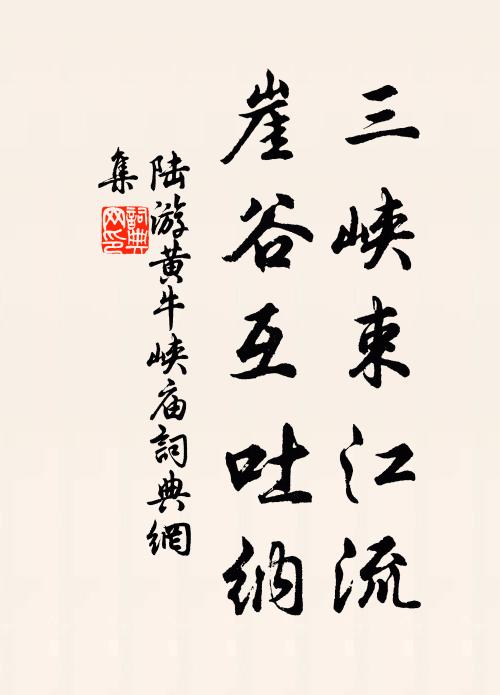 三峡束江流
崖谷互吐纳
陆游黄牛峡庙詞典網
集
詞典网印